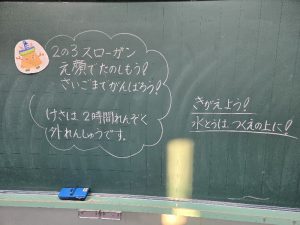 2の3 スローガン
元顔でたのしもう！
さいごまでがんばろう！
けさは、2時間れんぞく
外れんしゅうです。
きがえよう！
水とうは、つくえの上に！